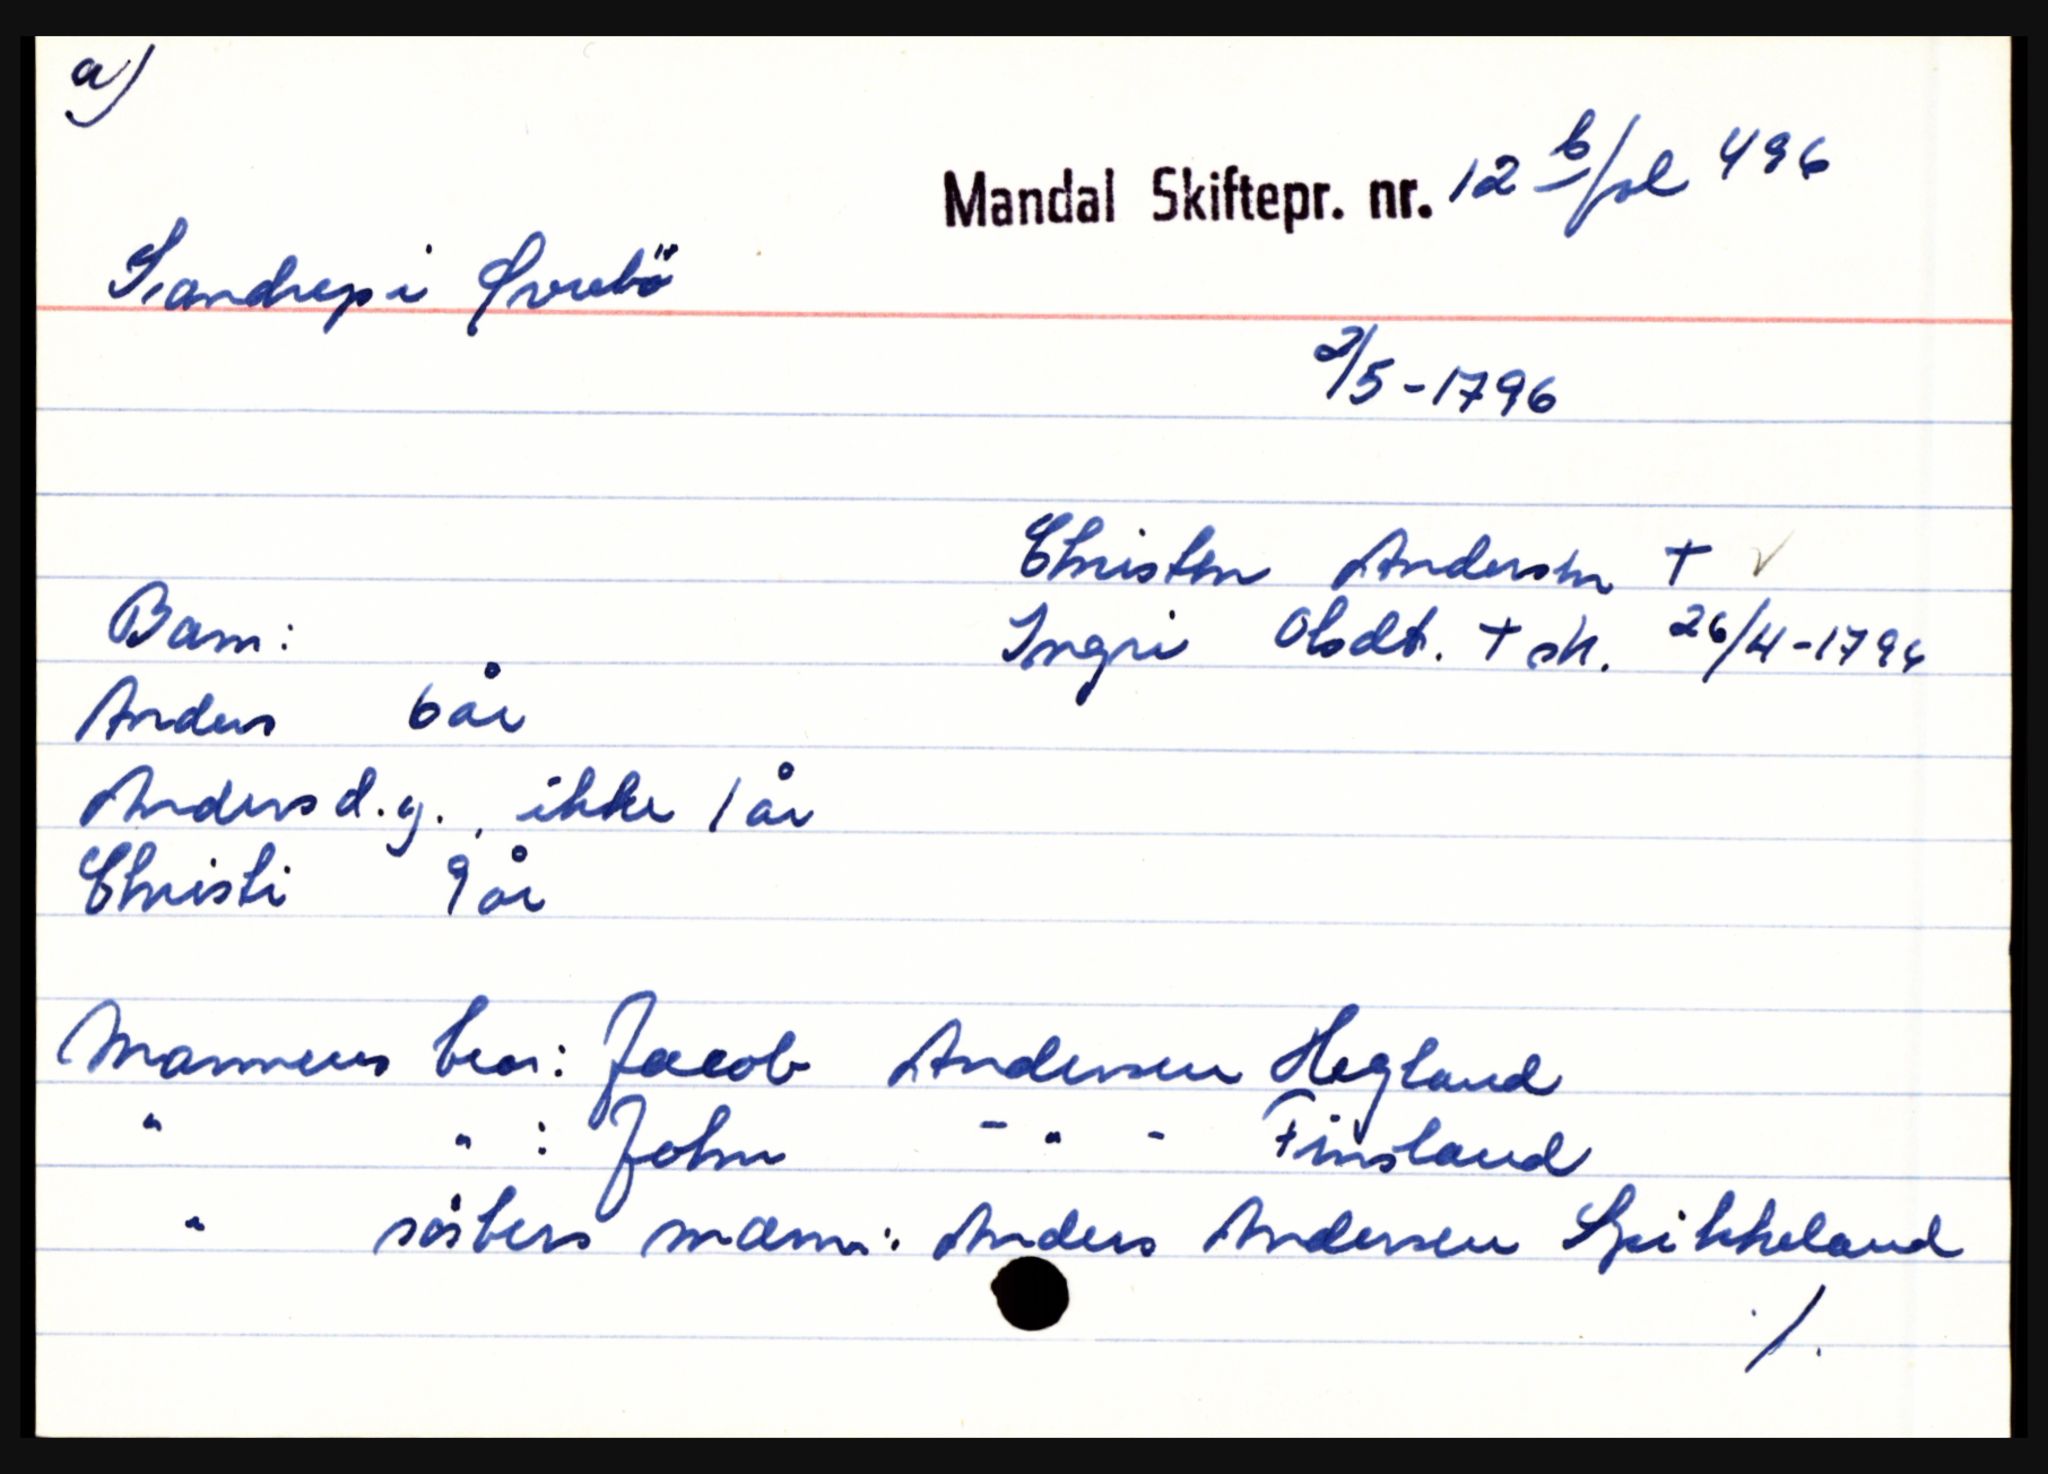 a)
Mandal Skiftepr. nr. 12 b/pl 496
i Øvrebö
2/5-1796
Christen Andersen +
Barn:
Ingri Olsdt. + sk. 26/4-1796
Anders 6 år
Anders d.y., ikke 1 år
Christi 9 år
Mannens bror: Jacob Andersen Hegland
" " : John - " - Finsland
" sösters mann: Anders Andersen Spikkeland
./.